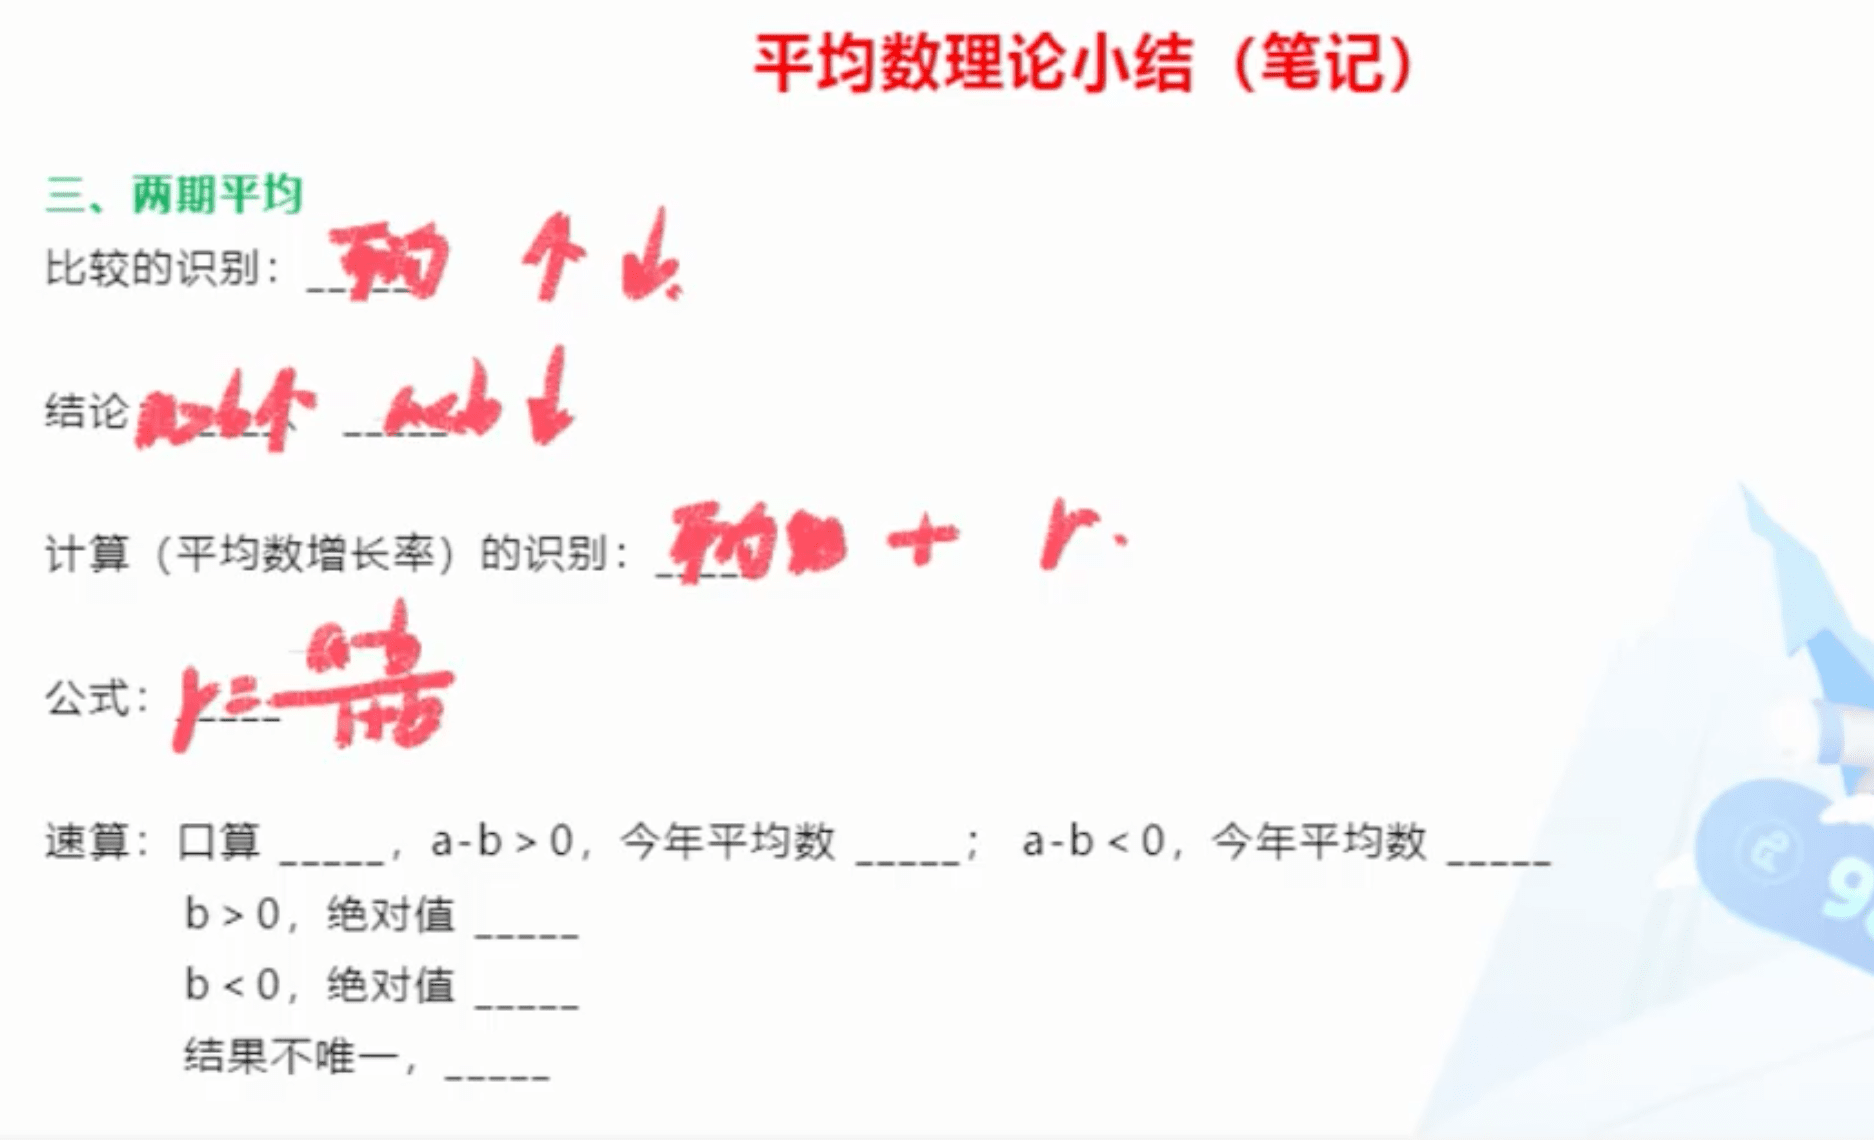 平均数理论小结（笔记）
三、两期平均
比较的识别：_____ 平均 ↑ ↓
结论 a>b↑、_____ a<b↓
计算（平均数增长率）的识别：_____ 平均数 + r.
公式：r=(a-b)/(1+b)
速算：口算 _____，a-b > 0，今年平均数 _____； a-b < 0，今年平均数 _____
b > 0，绝对值 _____
b < 0，绝对值 _____
结果不唯一，_____